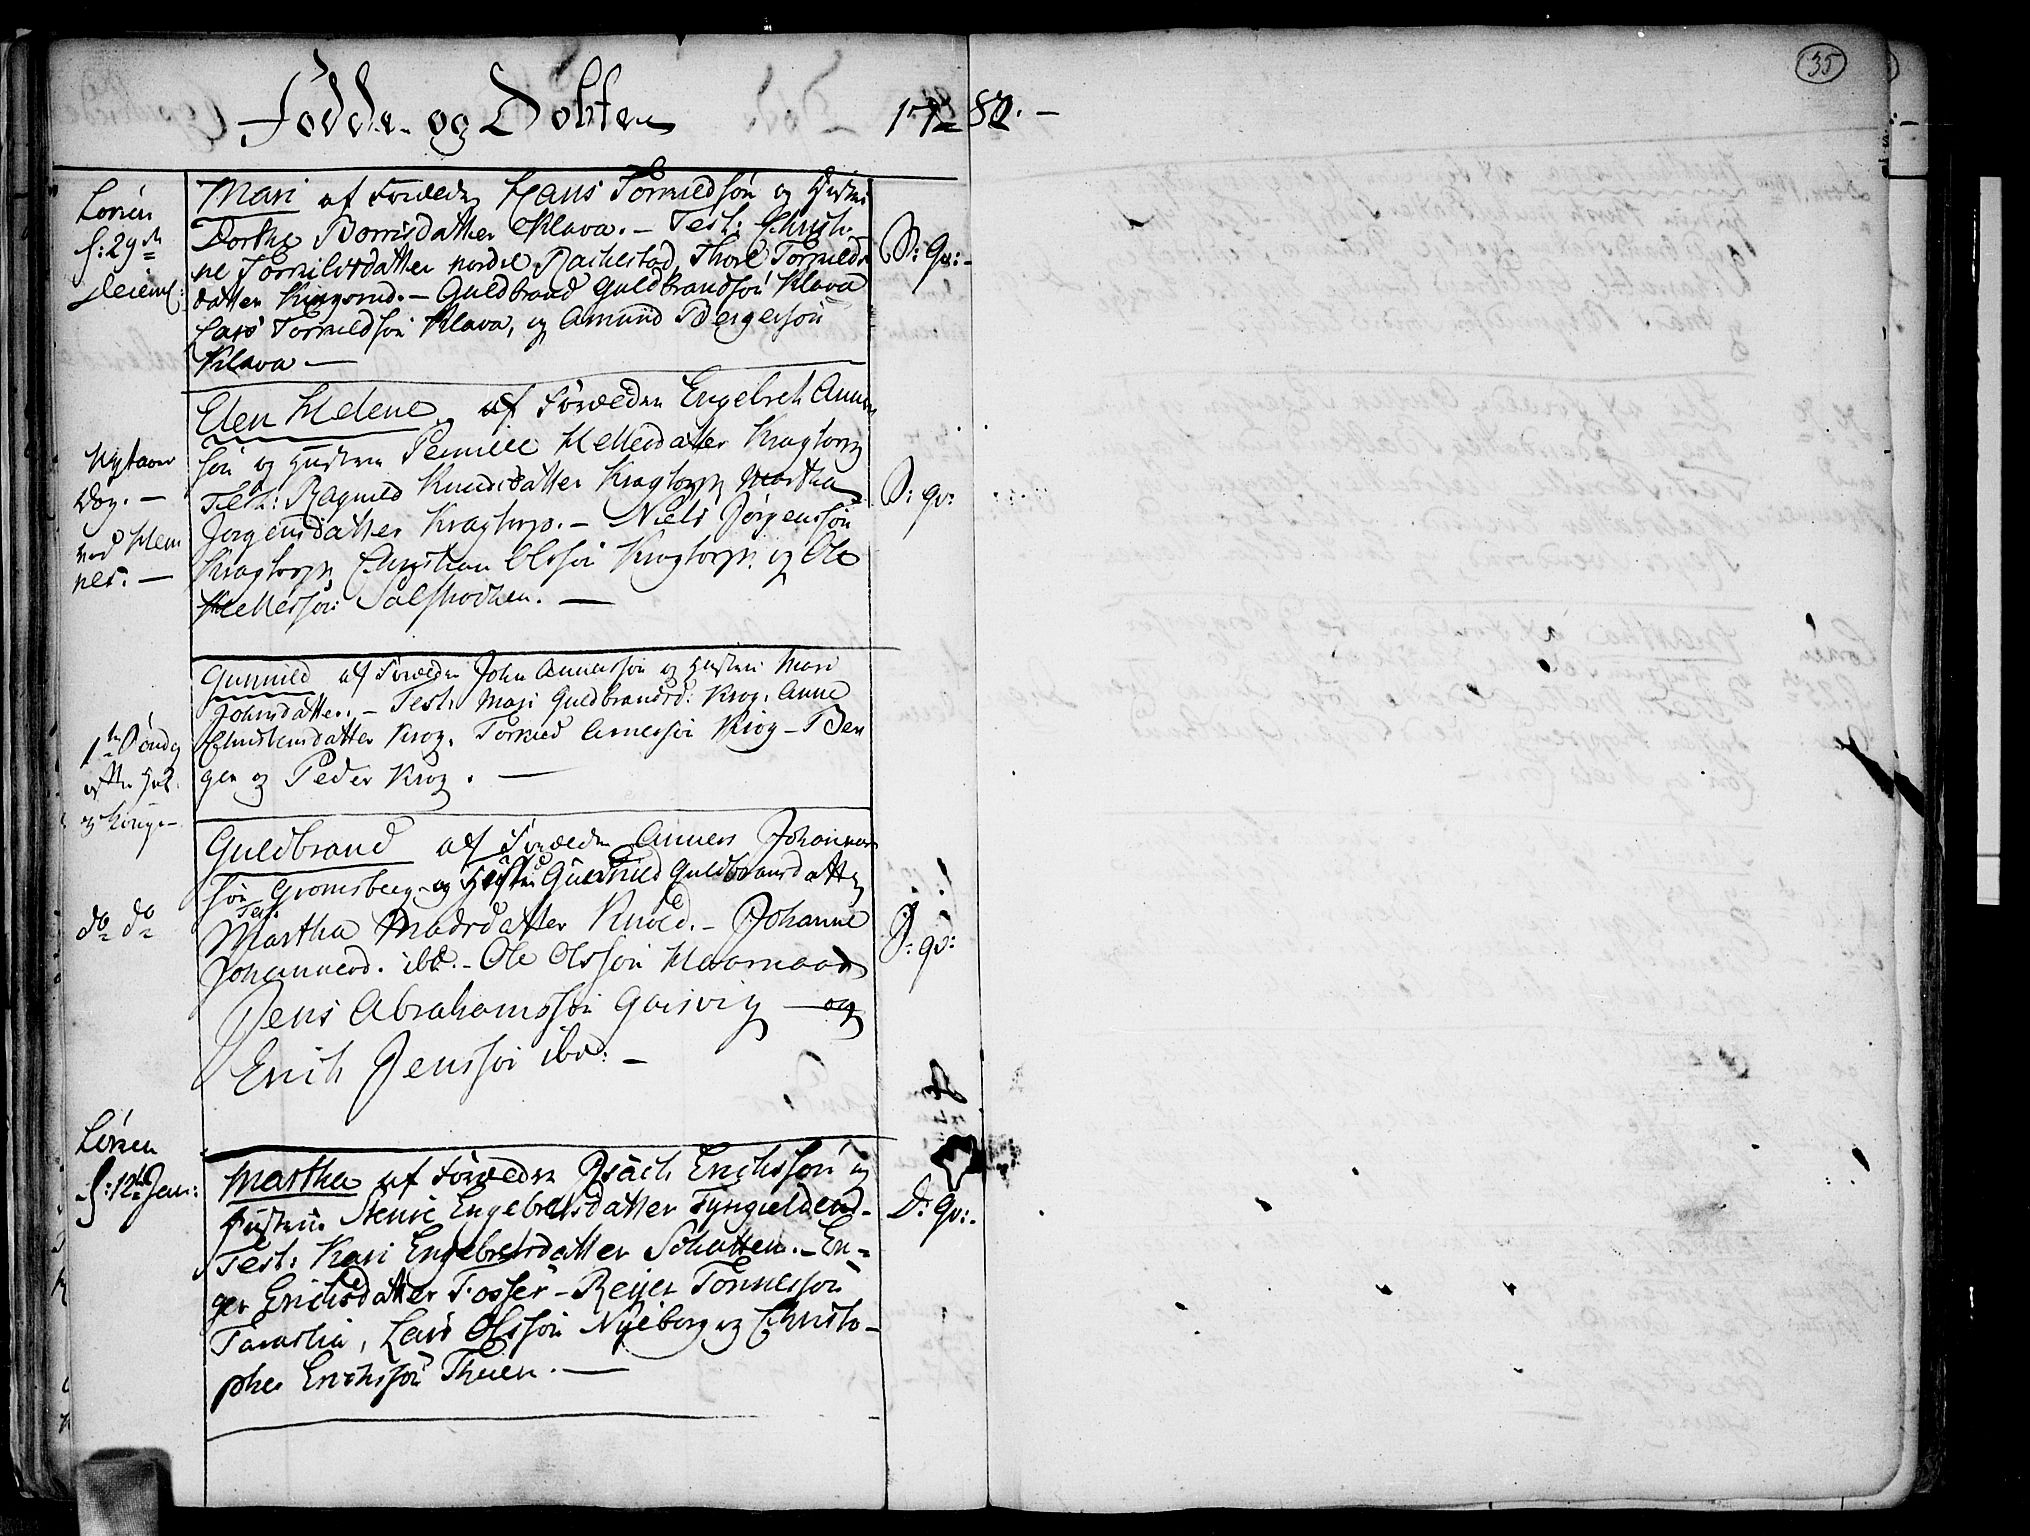 35
Fødde og Døbte
1780.-
Løver:
d: 29de
Decemb:
Mari af Forældr. Hans Tormedsøn og Hustrue
Dorthe Borrisdatter Klava. - Test: Christi-
ne Tormedsdatter nordre Rachestad, Thore Tormeds
datter Kingsrud. - Guldbrand Guldbrandsøn Klava
Lars Tormedsøn Klava, og Amund Bergersøn
Klava -
D: qv: -
Nytaars
Dag. -
ved Hem
nes. -
Elen Helene af Forældre Engebret Anners
søn og Hustrue Pernille Kelledatter Kragtorp
Test: Ragnild Knudsdatter Kragtorp, Martha
Jørgensdatter Kragtorp. - Niels Jørgenssøn
Kragtorp, Christian Olssøn Kragtorp og Ole
Kellessøn Salshodhen. -
D: qv:
1te Søndag
efter Hel.
3 Konge-
Gunnild af Forældre John Annerssøn og Hustrue Mari
Johnsdatter. - Test: Mari Guldbrandsd: Krog, Anne
Christensdatter Krog. Tormed Arnessøn Krog - Ber
ger og Peder Krog. -
do do
Guldbrand af Forældre Anners Johanners
søn Gromsberg og Hustrue Gunnild Guldbransdatter
Test:
Martha Madsdatter Knold. - Johanne
Johannesd. ibd. - Ole Olssøn Haarnaas
Jens Abrahamssøn Gaasvig - og
Erich Jenssøn ibd: -
D: qv:
Løver
d: 12te Jan:
Martha af Forældre Isach Erichssøn og
Hustrue Stenie Engebretsdatter Tyngielden.
Test: Kari Engebretsdatter Schatten. - En=
ger Erichsdatter Fosser - Reyer Tønnessøn
Taraldrud, Lars Olssøn Nyeborg og Christo-
pher Erichsøn Thuen. -
D: qv: -